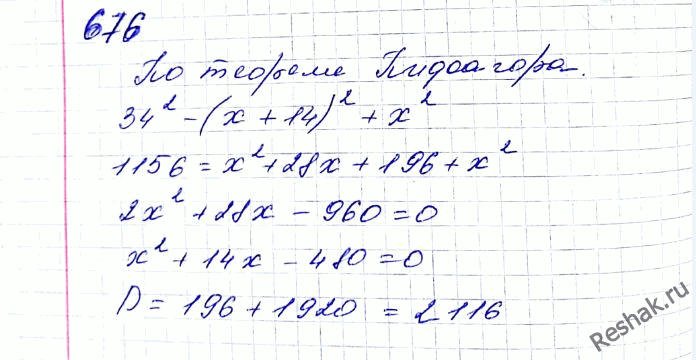 676
По теореме Пифагора.
34² - (x + 14)² + x²
1156 = x² + 28x + 196 + x²
2x² + 28x - 960 = 0
x² + 14x - 480 = 0
D = 196 + 1920 = 2116
Reshak.ru